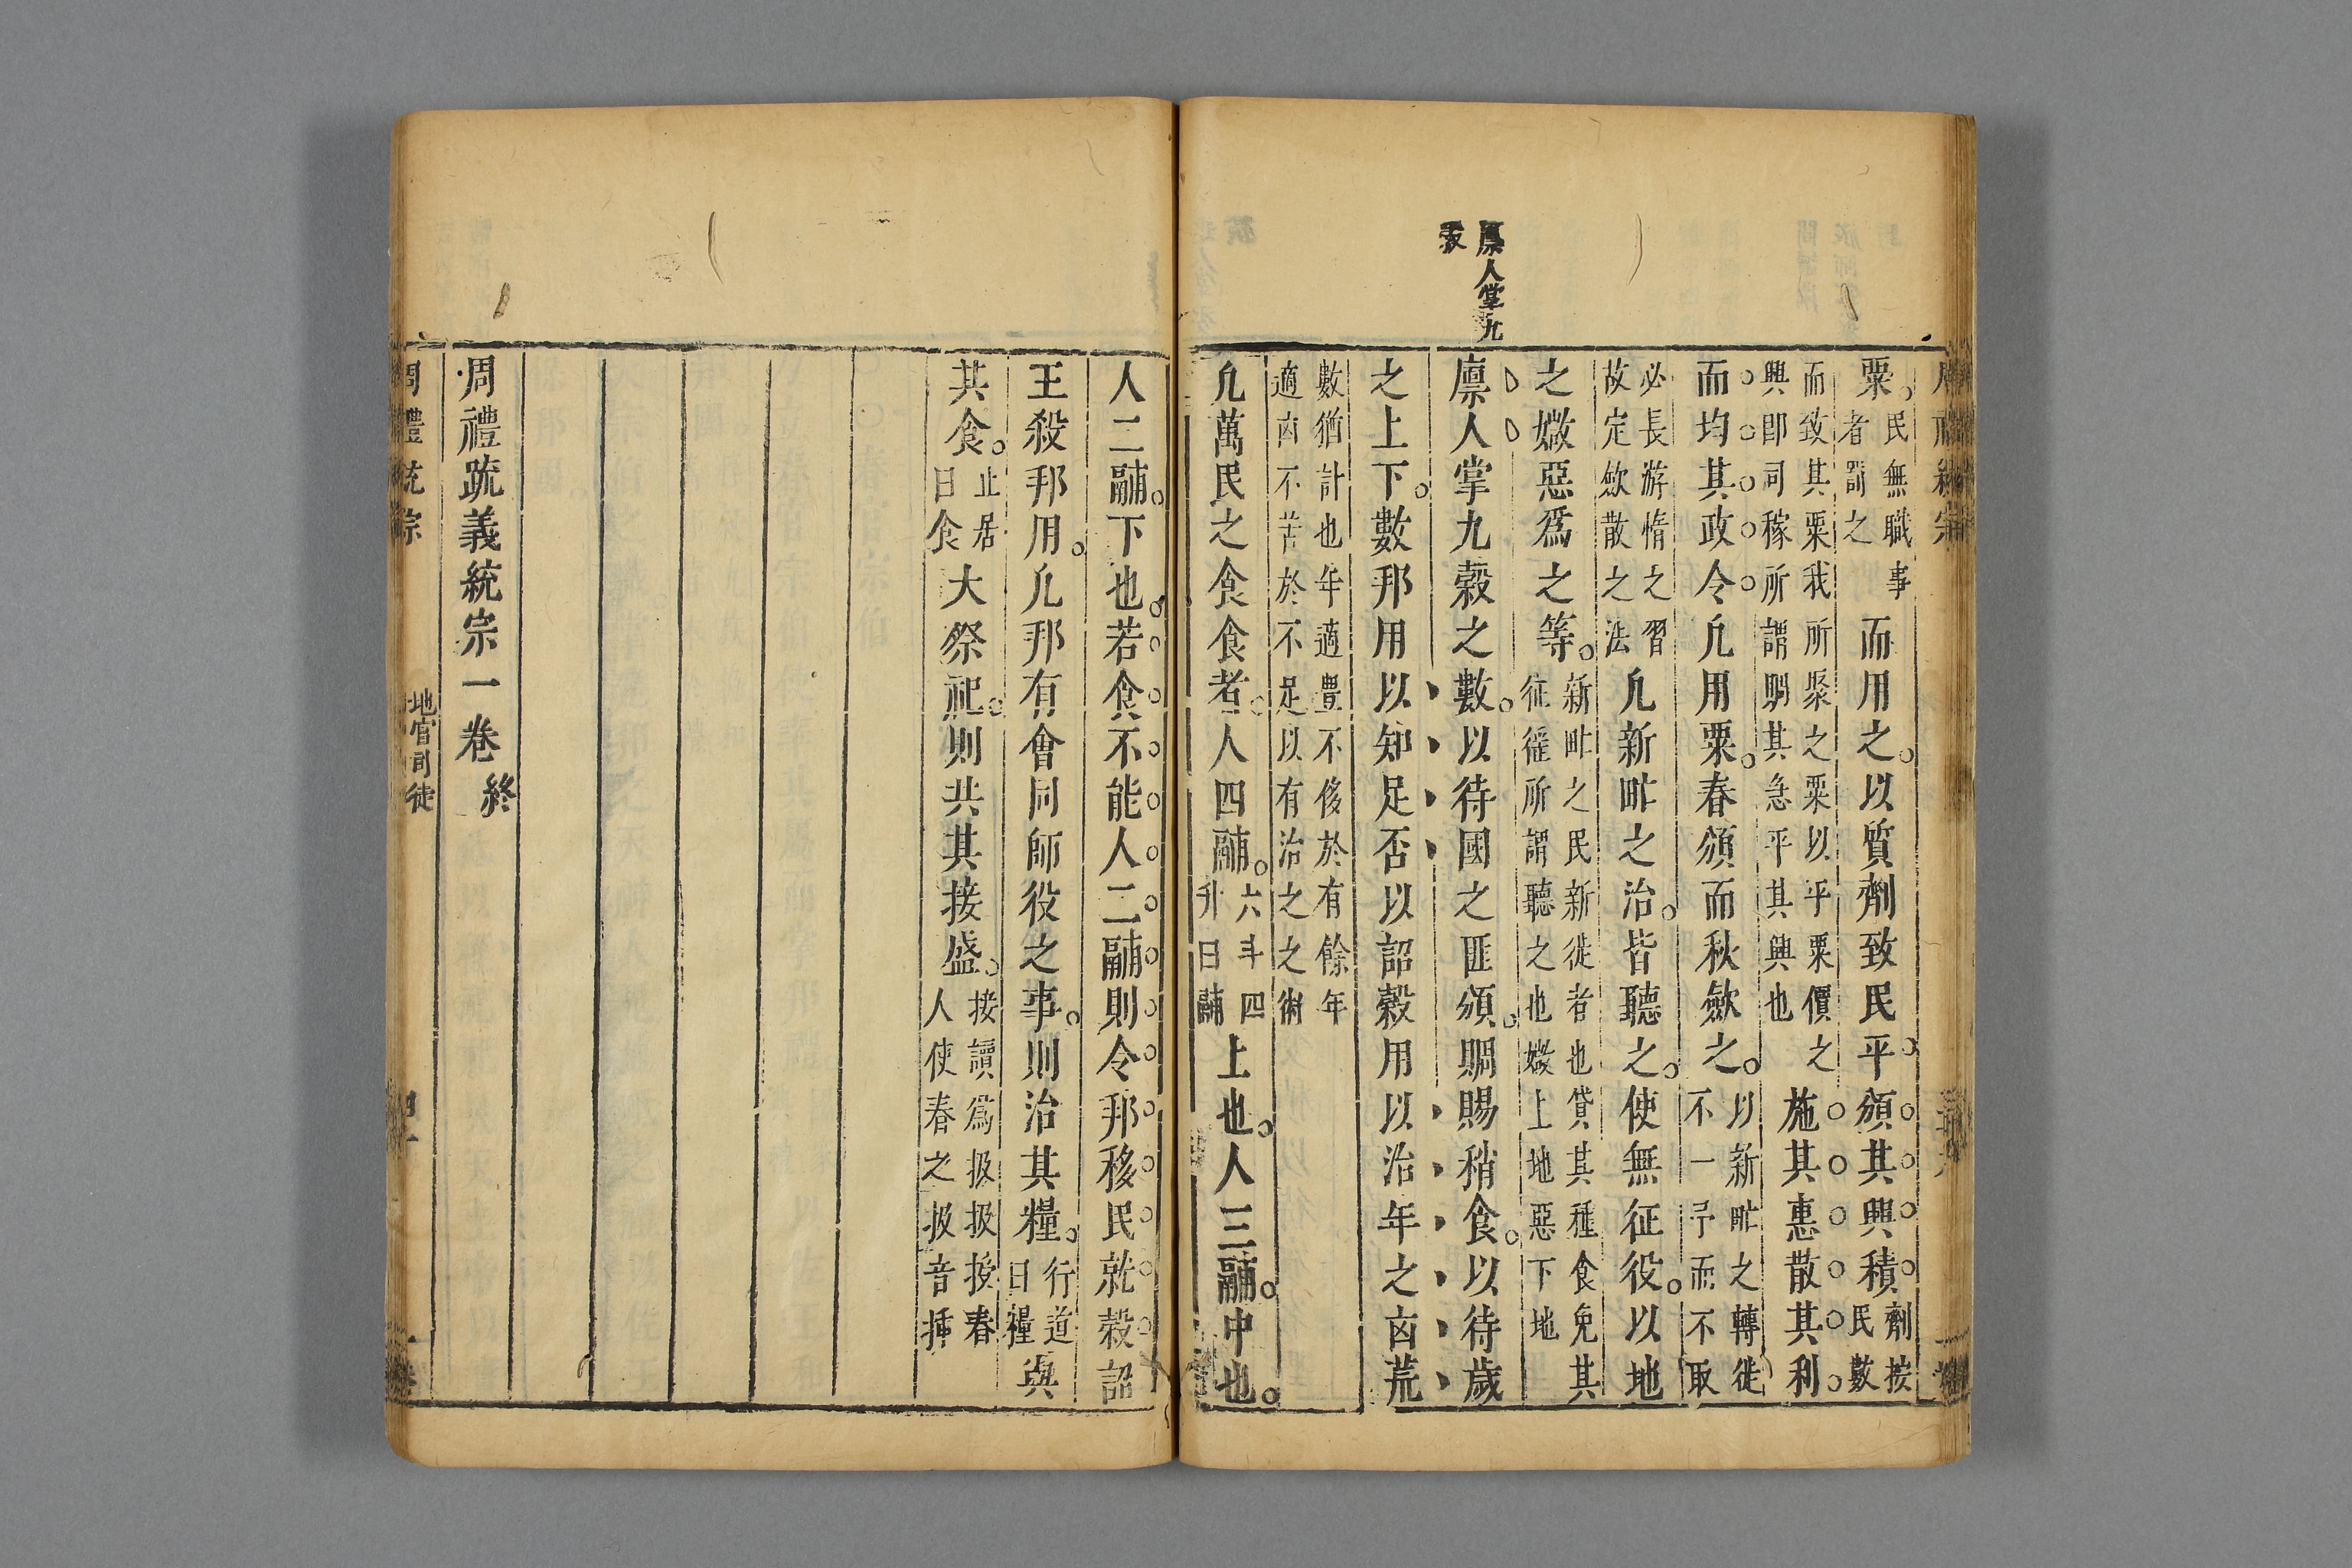 廪人掌九
穀
粟民無職事者罰之而用之以質劑致民平頒其興積劑按民數
而致其粟我所聚之粟以平粟價之興卽司稼所謂賙其急平其興也施其惠散其利
而均其政令凢用粟春頒而秋歛之以新甿之轉徙不一予而不取
必長游惰之習故定歛散之法凢新甿之治皆聽之使無征役以地
之媺惡爲之等新甿之民新徙者也貸其種食免其征徭所謂聽之也媺上地惡下地
廪人掌九榖之數以待國之匪頒賙賜稍食以待歲
之上下數邦用以知足否以詔榖用以治年之㐫荒
數猶計也年適豊不侈於有餘年適㐫不苦於不足以有治之之術
凢萬民之食食者人四鬴六斗四升曰鬴上也人三鬴中也
人二鬴下也若食不能人二鬴則令邦移民就榖詔
王殺邦用凢邦有會同師役之事則治其糧行道曰糧與
其食止居曰食大祭祀則共其接盛接讀爲扱扱授舂人使舂之扱音揷
周禮䟽義統宗一卷終
周禮統宗
地官司徒